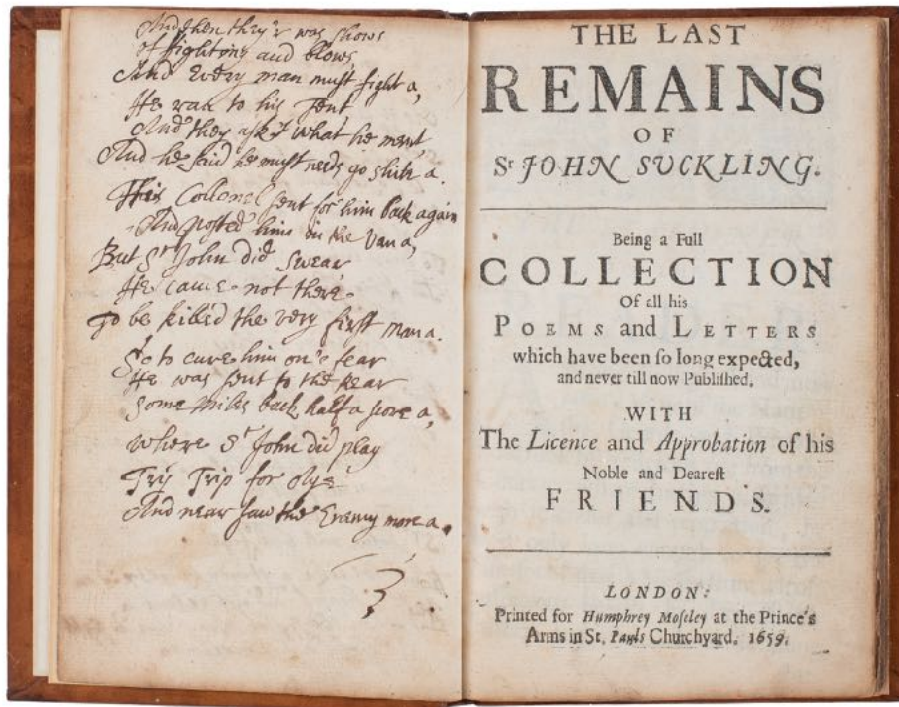 And then they'r was shows
of fighting and blows
And Every man must fight a,
He ran to his Tent
And they ask't what he ment
And he said he must needs go shite a.
His Collonel sent for him back again
And posted him in the Van a,
But Sr John did swear
He came not there
To be killed the very first man a.
So to cure him on's fear
He was sent to the Rear
Some miles back, half a score a,
Where Sr John did play
Trip for
And near saw the Enemy more a.
THE LAST
REMAINS
OF
Sr JOHN SUCKLING.
Being a Full
COLLECTION
Of all his
POEMS and LETTERS
which have been so long expected,
and never till now Published.
WITH
The Licence and Approbation of his
Noble and Dearest
FRIENDS.
LONDON:
Printed for Humphrey Moseley at the Prince's
Arms in St. Pauls Churchyard. 1659.